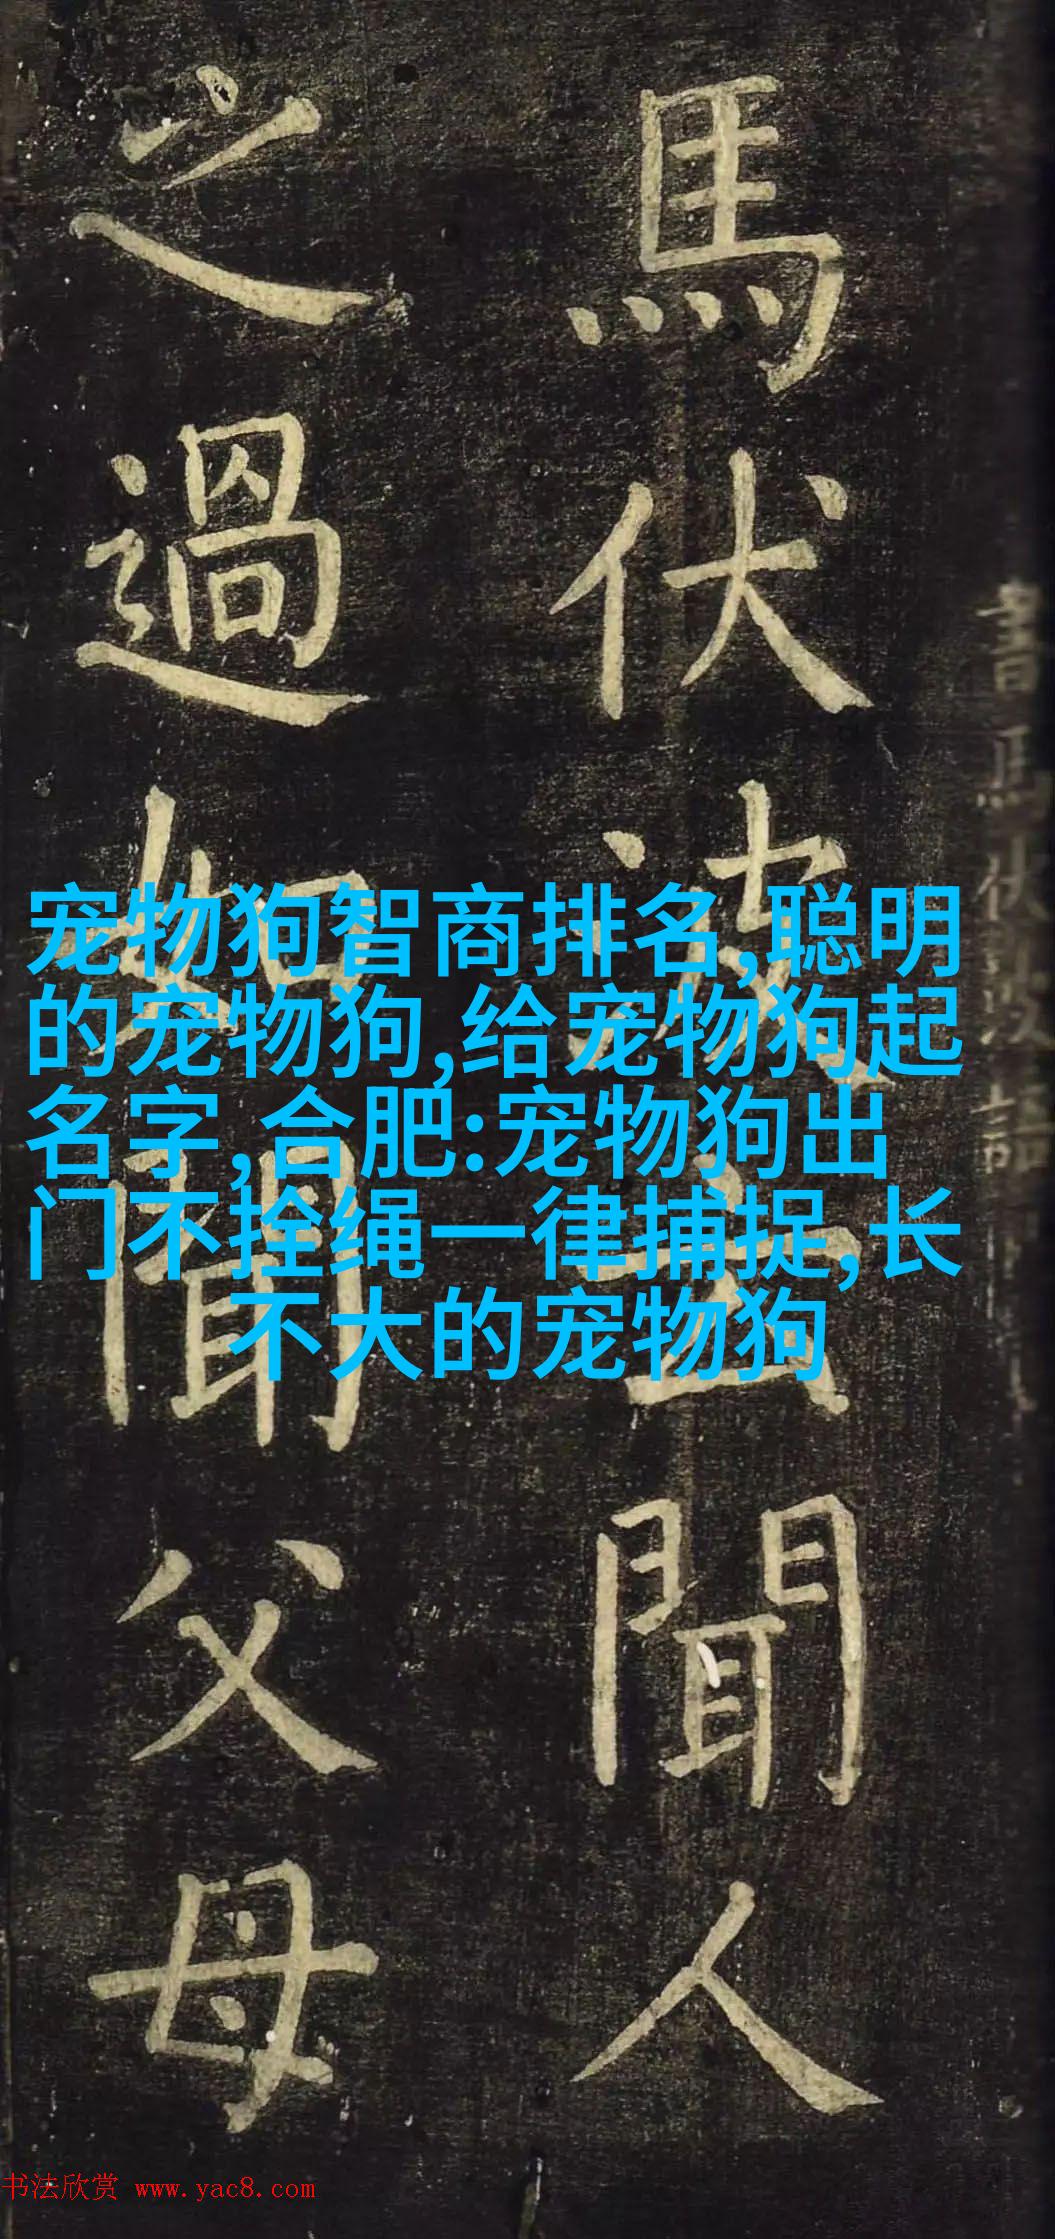 馬伏波云聞人
之過如聞父母
書馬伏波語
宠物狗智商排名,聪明
的宠物狗,给宠物狗起
名字,合肥:宠物狗出
门不拴绳一律捕捉,长
不大的宠物狗
书法欣赏 www.yac8.com